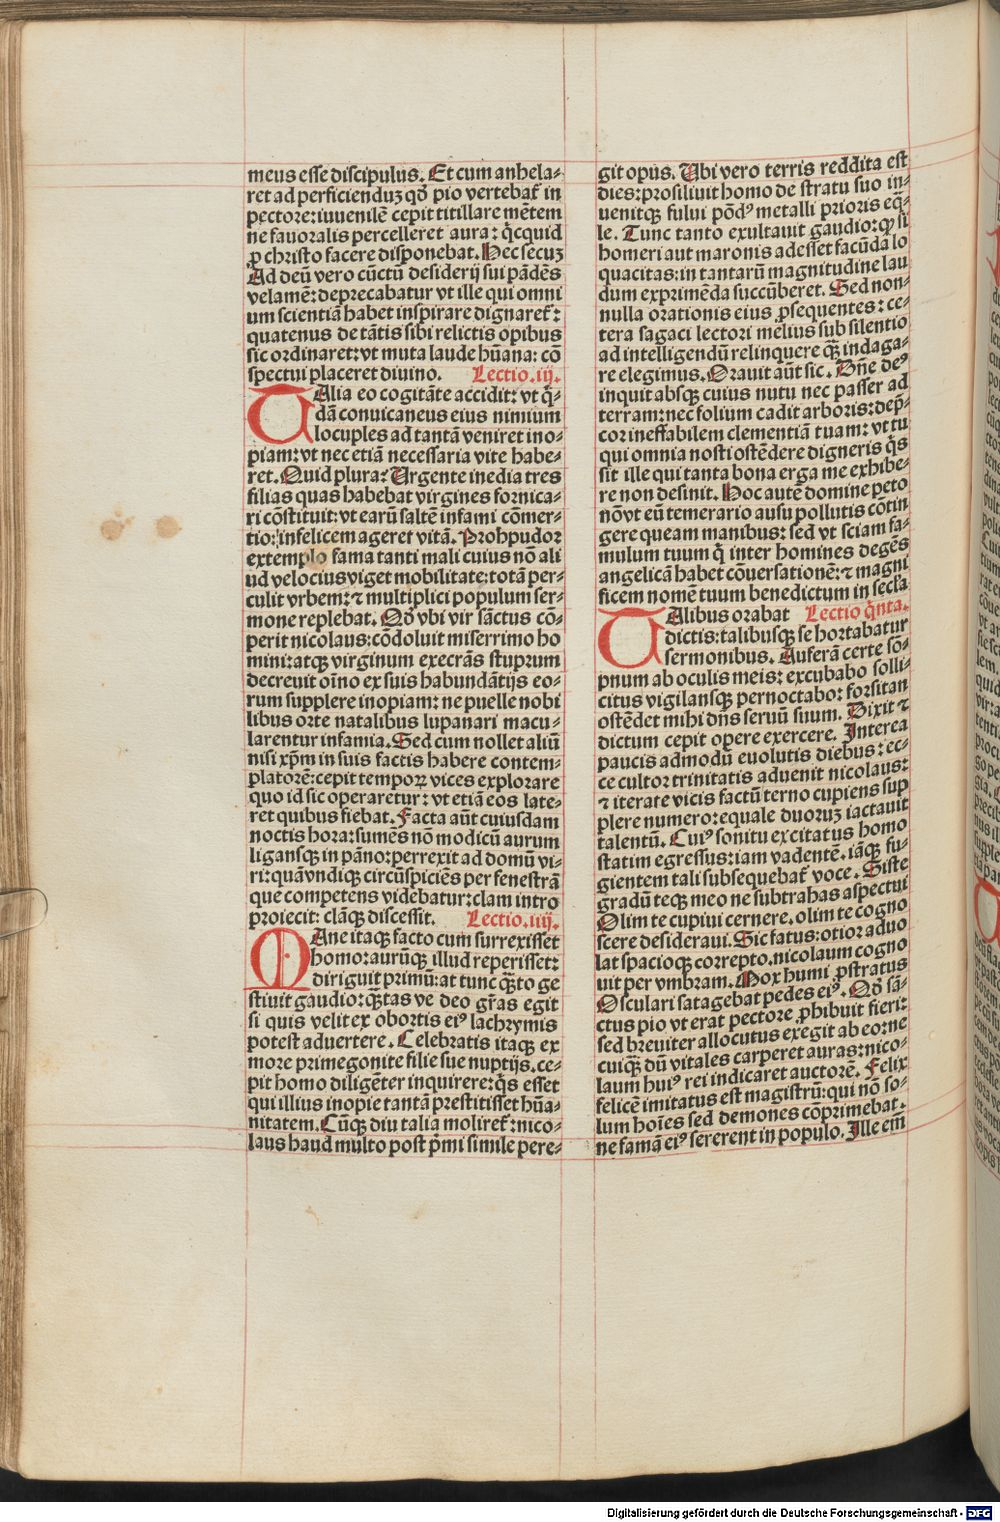 meus esse discipulus. Et cum anhela-
ret ad perficienduꝫ qđ pio vertebat̄ in
pectore: iuuenilē cepit titillare mētem
ne fauoralis percelleret aura: q̄cquid
ꝓ christo facere disponebat. Hec secuꝫ
Ad deū vero cūctū desiderij sui pādēs
velamē: deprecabatur vt ille qui omni
um scientiā habet inspirare dignaret̄:
quatenus de tātis sibi relictis opibus
sic ordinaret: vt muta laude hūana: cō
spectui placeret diuino. Lectio.iij.
TAlia eo cogitāte accidit: vt q̄-
dā conuicaneus eius nimium
locuples ad tantā veniret ino-
piam: vt nec etiā necessaria vite habe-
ret. Quid plura? Urgente inedia tres
filias quas habebat virgines fornica-
ri cōstituit: vt earū saltē infami cōmer-
tio: infelicem ageret vitā. Prohpudor
extemplo fama tanti mali cuius nō ali
ud velociusviget mobilitate: totā per-
culit vrbem: ⁊ multiplici populum ser-
mone replebat. Qđ vbi vir sāctus cō-
perit nicolaus: cōdoluit miserrimo ho
mini: atqꝫ virginum execrās stuprum
decreuit oīno ex suis habundātijs eo-
rum supplere inopiam: ne puelle nobi
libus orte natalibus lupanari macu-
larentur infamia. Sed cum nollet aliū
nisi xp̄m in suis factis habere contem-
platorē: cepit tempoꝝ vices explorare
quo id sic operaretur: vt etiā eos late-
ret quibus fiebat. Facta aūt cuiusdam
noctis hora: sumēs nō modicū aurum
ligansqꝫ in pāno: perrexit ad domū vi-
ri: quā vndiqꝫ circūspiciēs per fenestrā
que competens videbatur: clam intro
proiecit: clāqꝫ discessit. Lectio.iiij.
MAne itaqꝫ facto cum surrexisset
homo: aurūqꝫ illud reperisset:
diriguit primū: at tunc q̄ꝫto ge
stiuit gaudio: q̄ꝫtas ve deo gr̄as egit
si quis velit ex obortis eiꝰ lachrymis
potest aduertere. Celebratis itaqꝫ ex
more primegonite filie sue nuptijs. ce-
pit homo diligēter inquirere: q̄s esset
qui illius inopie tantā prestitisset hūa-
nitatem. Cūqꝫ diu talia moliret̄: nico-
laus haud multo post p̄mi simile pere-
git opus. Ubi vero terris reddita est
dies: prosiliuit homo de stratu suo in-
uenitqꝫ fului pōdꝰ metalli prioris eq̄-
le. Tunc tanto exultauit gaudio: ꝙ si
homeri aut maronis adesset facūda lo
quacitas: in tantarū magnitudine lau
dum exprimēda succūberet. Sed non-
nulla orationis eius ꝓsequentes: ce-
tera sagaci lectori melius sub silentio
ad intelligendū relinquere q̄ꝫ indaga-
re elegimus. Orauit aūt sic. Dn̄e deꝰ
inquit absqꝫ cuius nutu nec passer ad
terram: nec folium cadit arboris: dep̄-
cor ineffabilem clementiā tuam: vt tu
qui omnia nosti ostēdere digneris q̄s
sit ille qui tanta bona erga me exhibe-
re non desinit. Hoc autē domine peto
nōvt eū temerario ausu pollutis cōtin
gere queam manibus: sed vt sciam fa-
mulum tuum q̄ inter homines degēs
angelicā habet cōuersationē: ⁊ magni
ficem nomē tuum benedictum in secl̄a
TAlibus orabat Lectio q̄nta.
dictis: talibusqꝫ se hortabatur
sermonibus. Auferā certe sō-
pnum ab oculis meis: excubabo solli-
citus vigilansqꝫ pernoctabo: forsitan
ostēdet mihi dn̄s seruū suum. Dixit ⁊
dictum cepit opere exercere. Interea
paucis admodū euolutis diebus: ec-
ce cultor trinitatis aduenit nicolaus:
⁊ iterate vicis factū terno cupiens sup
plere numero: equale duoruꝫ iactauit
talentū. Cuiꝰ sonitu excitatus homo
statim egressus: iam vadentē. iāqꝫ fu-
gientem tali subsequebat̄ voce. Siste
gradū teqꝫ meo ne subtrahas aspectui
Olim te cupiui cernere. olim te cogno
scere desideraui. Sic fatus: otior aduo
lat spacioqꝫ correpto. nicolaum cogno
uit per vmbram. Mox humi ꝓstratus
Osculari satagebat pedes eiꝰ. Qđ sā-
ctus pio vt erat pectore ꝓhibuit fieri:
sed breuiter allocutus exegit ab eo: ne
cuiq̄ꝫ dū vitales carperet auras: nico-
laum huiꝰ rei indicaret auctorē. Felix
felicē imitatus est magistrū: qui nō so-
lum hoīes sed demones cōprimebat.
ne famā eiꝰ sererent in populo. Ille em̄
Digitalisierung gefördert durch die Deutsche Forschungsgemeinschaft - DFG